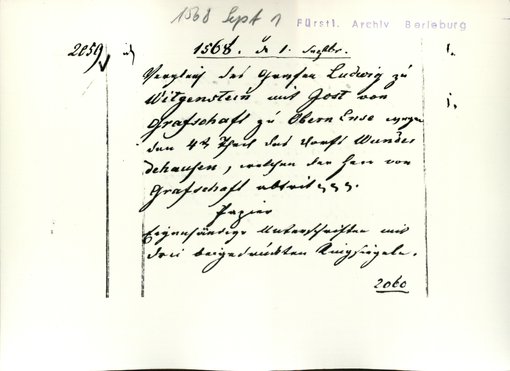 1568 Sept 1
Fürstl. Archiv Berleburg
2059
1568. d 1. Septbr.
Vergleich des Grafen Ludwig zu
Witgenstein mit Jost von
Grafschaft zu Obern Ense wegen
den 4t Theil des Dorfs Wunder
dehausen, welchen der Herr von
Grafschaft abtrit
Papier
Eigenhändige Unterschriften mit
drei beigedruckten Ringsiegeln.
2060